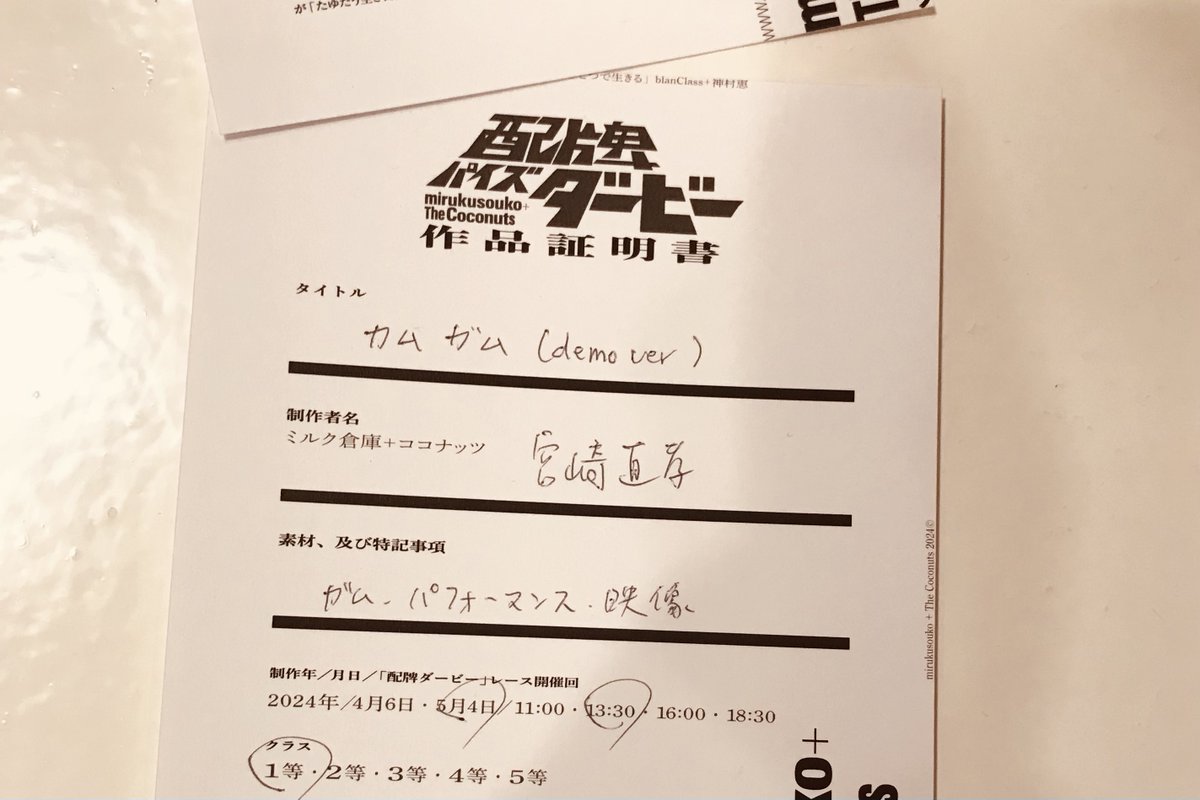 が「たゆたう生き
とつで生きる」blanClass+神村恵
配牌
パイズ
ダービー
mirukusouko+
The Coconuts
作品証明書
タイトル
カム ガム (demo ver)
制作者名
ミルク倉庫+ココナッツ 宮崎直孝
素材、及び特記事項
ガム. パフォーマンス. 映像
制作年/月日/「配牌ダービー」レース開催回
2024年/4月6日・5月4日/11:00・13:30・16:00・18:30
クラス
1等・2等・3等・4等・5等
mirukusouko + The Coconuts 2024©